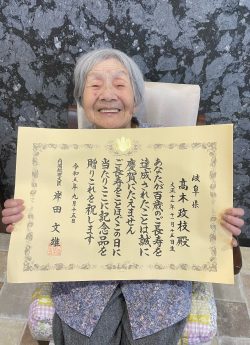 岐阜県
高木政枝殿
あなたが百歳のご長寿を
達成されたことは誠に
慶賀にたえません
ご長寿をことほぐこの日に
当たりここに記念品を
贈りこれを祝します
令和五年九月十五日
内閣総理大臣 岸田文雄